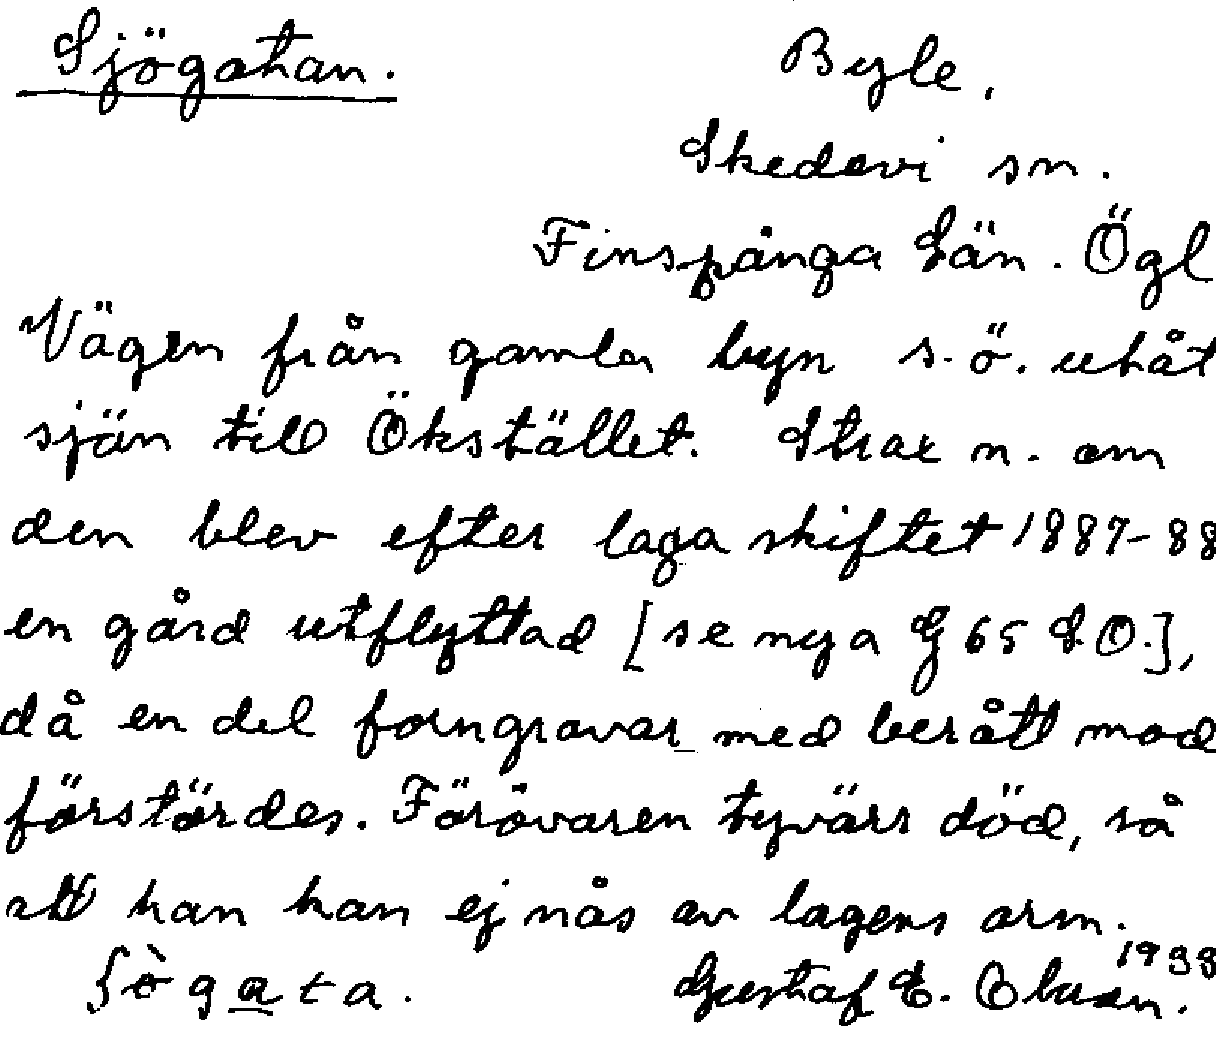 Sjögatan. Byle,
Skedevi sn.
Finspånga Län. Ögl
Vägen från gamla byn s.ö. utåt
sjön till Ökstället. Strax n. om
den blev efter laga skiftet 1887-88
en gård utflyttad [se nya G 65 S.O.],
då en del forngravar med berått mod
förstördes. Förövaren tyvärr död, så
att han kan ej nås av lagens arm.
1938
ʃò g a t a. Gustaf E.